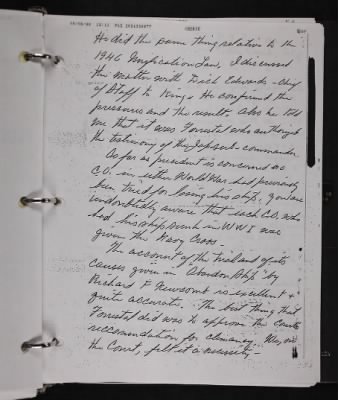 He did the same thing relative to the
1946 Unification Law. I discussed
the matter with Dick Edwards - Chief
of Staff to King. He confirmed the
pressures and the results. Also he told
me that it was Forrestal who
the testimony of the Jap sub-commander.
As far as precedent is concerned no
C.O. in either World War had previously
been tried for losing his ship. You are
undoubtedly aware that each C.O. who
had his ship sunk in WW I was
given the Navy Cross.
The account of the trial and of its
causes given in "Abandon Ship" by
Richard F. Newcomb is excellent &
quite accurate. The best thing that
Forrestal did was to approve the Courts
recommendation for clemency. We, on
the Court, felt it a necessity -